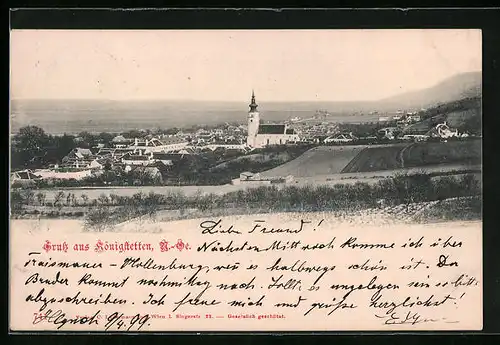 Gruß aus Königstetten, N.-Oe.
Lieber Freund!
Nächsten Mittwoch komme ich über
Traismauer - Hollenburg, wenn es halbwegs schön ist. Da
Bender kommt nachmittag nach. Sollt's ungelegen sein so bitte
abzuschreiben. Ich freue mich und grüße herzlichst!
9/4. 99.
Wien I. Singerstr. — Gesetzlich geschützt.